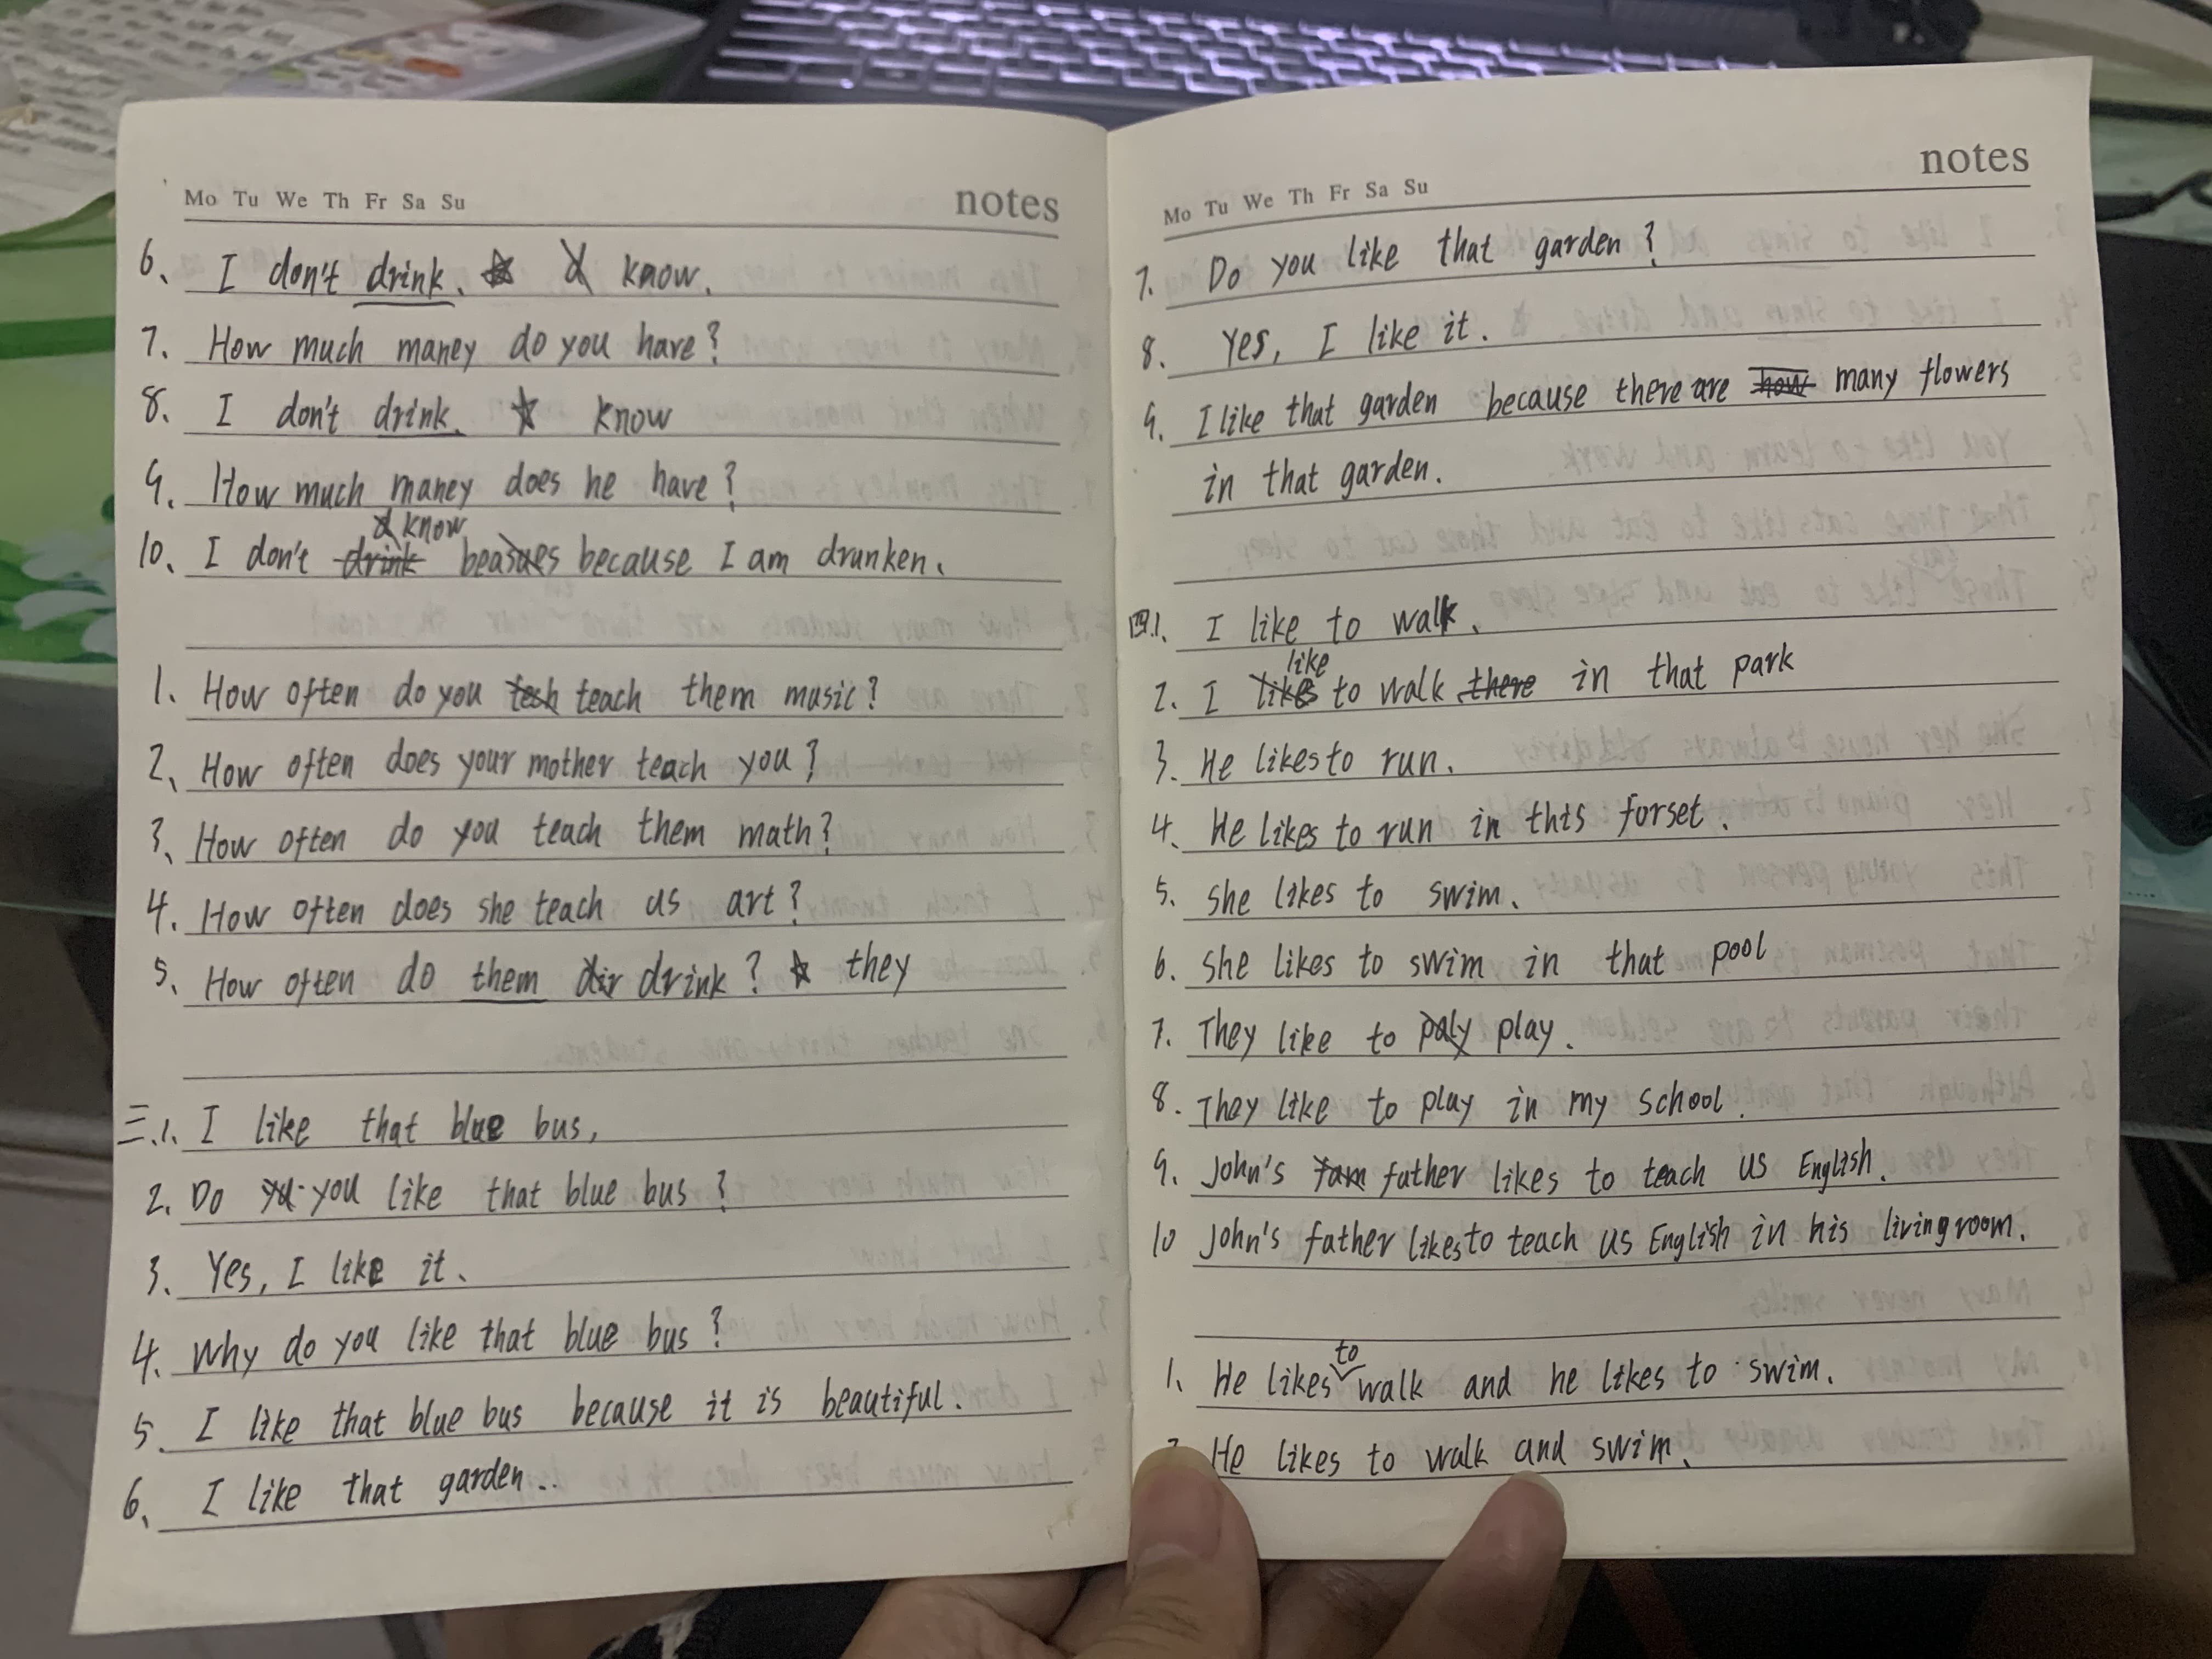 Mo Tu We Th Fr Sa Su notes
6. I don't drink. know.
7. How much maney do you have?
8. I don't drink. know
9. How much maney does he have?
know
10. I don't drink beasues because I am drunken.
1. How often do you tech teach them music?
2. How often does your mother teach you?
3. How often do you teach them math?
4. How often does she teach us art?
5. How often do them dir drink? they
三.1. I like that blue bus,
2. Do yu you like that blue bus?
3. Yes, I like it.
4. Why do you like that blue bus?
5. I like that blue bus because it is beautiful.
6. I like that garden..
Mo Tu We Th Fr Sa Su notes
7. Do you like that garden?
8. Yes, I like it.
9. I like that garden because there are how many flowers
in that garden.
四.1. I like to walk.
like
2. I likes to walk there in that park
3. He likes to run.
4. He likes to run in this forset.
5. she likes to swim.
6. she likes to swim in that pool
7. They like to paly play.
8. They like to play in my school.
9. John's fam father likes to teach us English.
10 John's father likes to teach us English in his livingroom.
to
1. He likes walk and he likes to swim.
He likes to walk and swim.